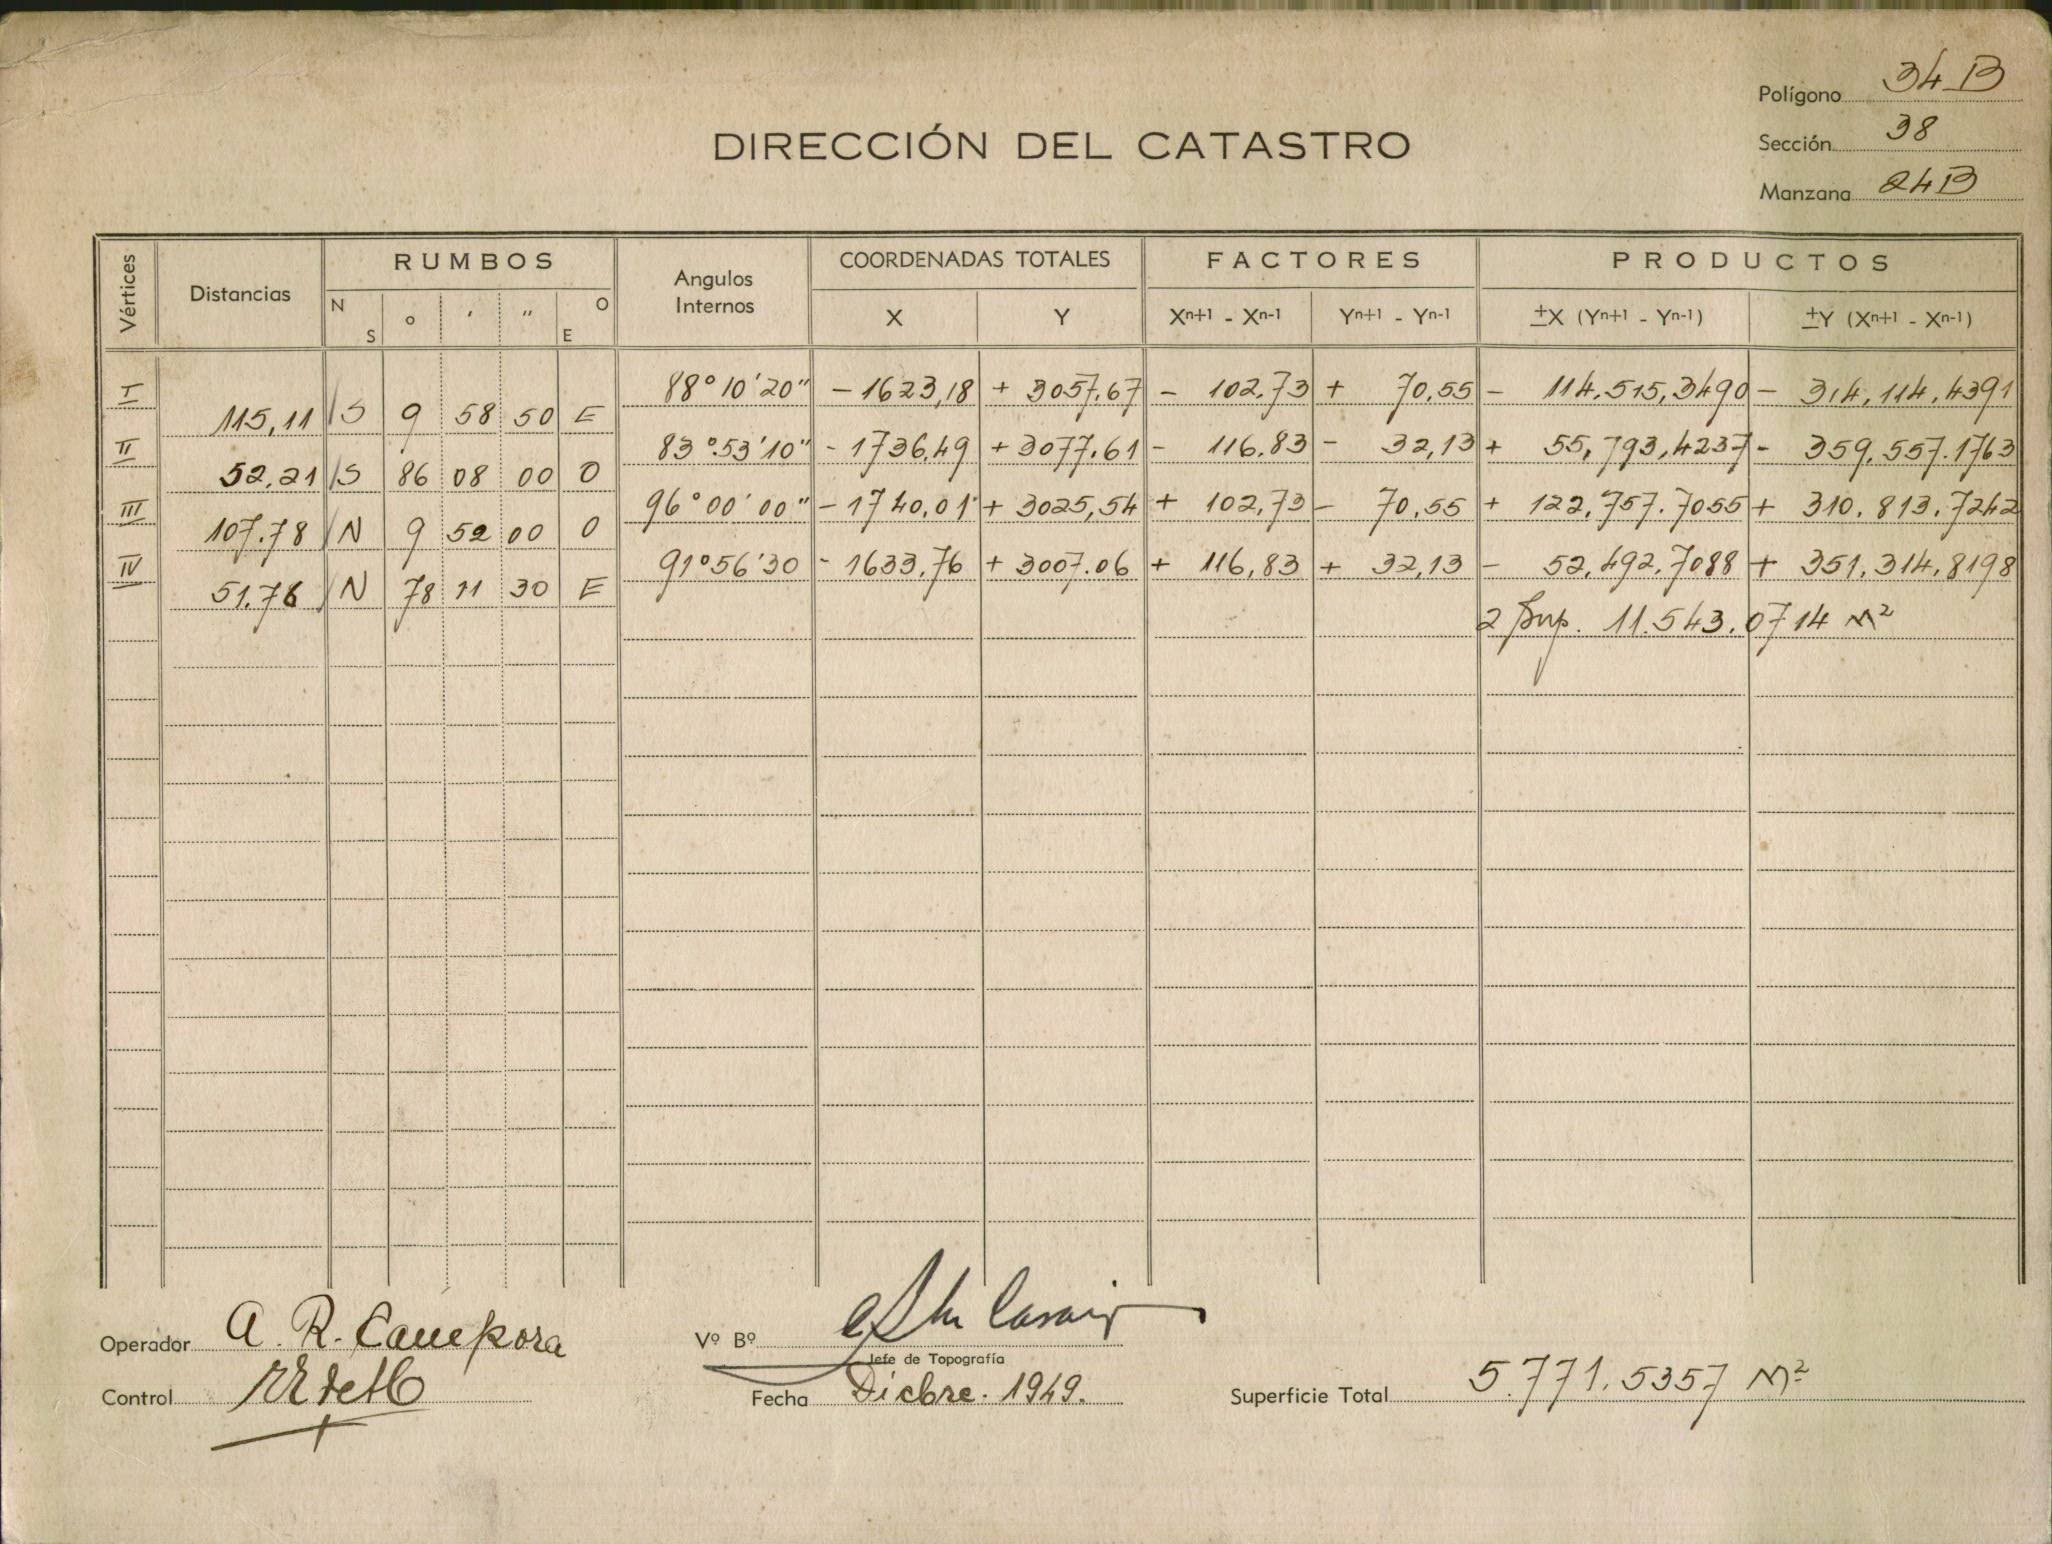 Polígono 34 B
DIRECCIÓN DEL CATASTRO
Sección 38
Manzana 24B
Vértices Distancias RUMBOS Angulos Internos COORDENADAS TOTALES FACTORES PRODUCTOS
N S ° ' " O E X Y Xn+1 - Xn-1 Yn+1 - Yn-1 ±X (Yn+1 - Yn-1) ±Y (Xn+1 - Xn-1)
I 88° 10' 20" - 1623,18 + 3057,67 - 102,73 + 70,55 - 114.515,3490 - 314,114,4391
115,11 S 9 58 50 E
II 83°53'10" - 1736,49 + 3077,61 - 116,83 - 32,13 + 55,793,4237 - 359.557.1763
52,21 S 86 08 00 O
III 96°00'00" - 1740,01 + 3025,54 + 102,73 - 70,55 + 122,757.7055 + 310.813.7242
107.78 N 9 52 00 O
IV 91°56'30 - 1633,76 + 3007.06 + 116,83 + 32,13 - 52,492,7088 + 351,314,8198
51,76 N 78 11 30 E
2 Sup. 11.543.0714 M²
Operador A. R. Campora
Vº Bº
Jefe de Topografía
Control
Fecha Dicbre. 1949.
Superficie Total 5.771.5357 M²